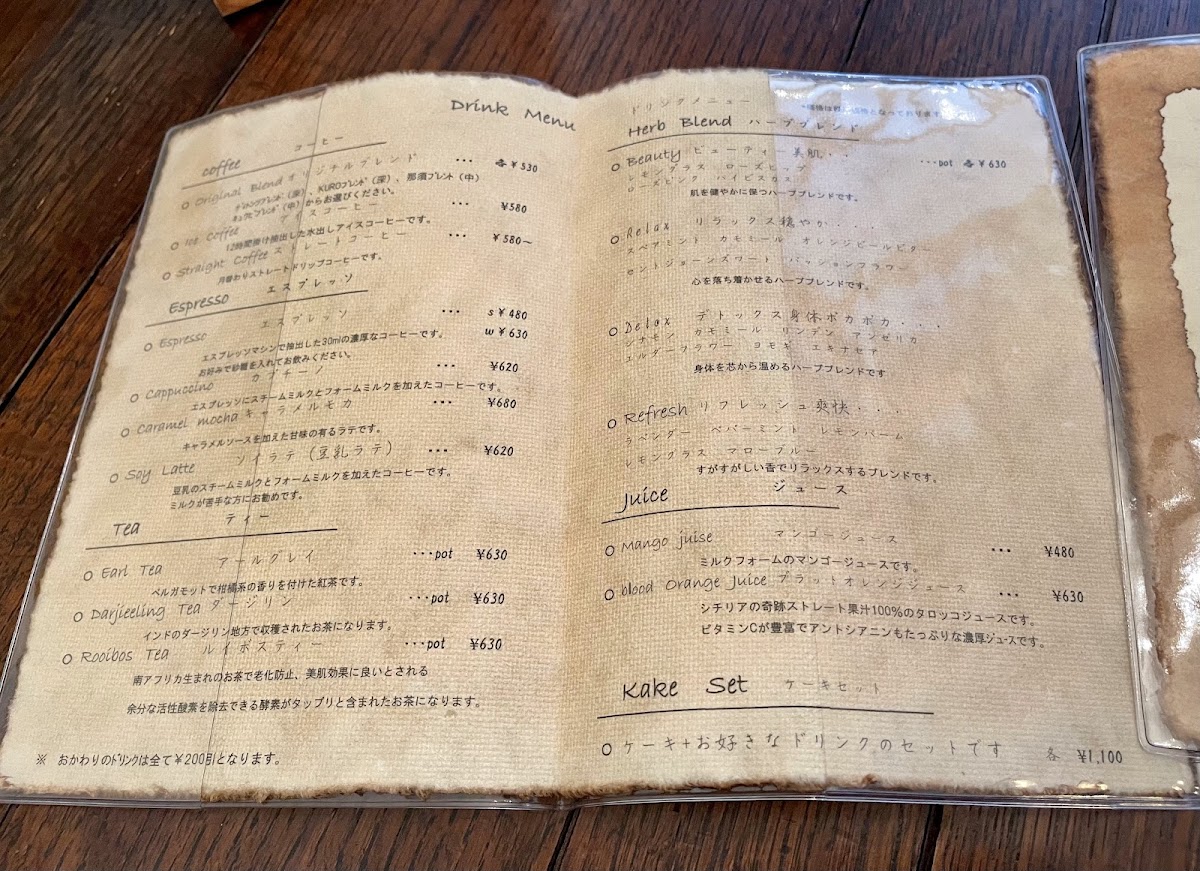 Drink Menu
coffee コーヒー
Original Blend オリジナルブレンド ・・・ 各¥530
、KUROブレンド(深)、那須ブレンド(中)
(中)からお選びください。
Ice Coffee アイスコーヒー ・・・ ¥580
12時間掛け抽出した水出しアイスコーヒーです。
Straight Coffee ストレートコーヒー ・・・ ¥580~
月替わりストレートドリップコーヒーです。
Espresso エスプレッソ
Espresso エスプレッソ ・・・ s¥480
w¥630
エスプレッソマシンで抽出した30mlの濃厚なコーヒーです。
お好みで砂糖を入れてお飲みください。
Cappuccino カプチーノ ・・・ ¥620
エスプレッソにスチームミルクとフォームミルクを加えたコーヒーです。
Caramel mocha キャラメルモカ ・・・ ¥680
キャラメルソースを加えた甘味の有るラテです。
Soy Latte ソイラテ(豆乳ラテ) ・・・ ¥620
豆乳のスチームミルクとフォームミルクを加えたコーヒーです。
ミルクが苦手な方にお勧めです。
Tea ティー
Earl Tea アールグレイ ・・・pot ¥630
ベルガモットで柑橘系の香りを付けた紅茶です。
Darjeeling Tea ダージリン ・・・pot ¥630
インドのダージリン地方で収穫されたお茶になります。
Rooibos Tea ルイボスティー ・・・pot ¥630
南アフリカ生まれのお茶で老化防止、美肌効果に良いとされる
余分な活性酸素を除去できる酵素がタップリと含まれたお茶になります。
※ おかわりのドリンクは全て¥200引となります。
ドリンクメニュー
となっております
Herb Blend ハーブブレンド
Beauty ビューティー美肌・・ ・・・pot 各¥630
レモングラス ローズヒップ
ローズピンク ハイビスカス
肌を健やかに保つハーブブレンドです。
Relax リラックス穏やか・・・
スペアミント カモミール オレンジピールビター
セントジョーンズワート パッションフラワー
心を落ち着かせるハーブブレンドです。
Delax デトックス身体ポカポカ・・・
シナモン カモミール リンデン アンゼリカ
エルダーフラワー ヨモギ エキナセア
身体を芯から温めるハーブブレンドです
Refresh リフレッシュ爽快・・・
ラベンダー ペパーミント レモンバーム
レモングラス マローブルー
すがすがしい香でリラックスするブレンドです。
Juice ジュース
Mango juise マンゴージュース ・・・ ¥480
ミルクフォームのマンゴージュースです。
blood Orange Juice ブラットオレンジジュース ・・・ ¥630
シチリアの奇跡ストレート果汁100%のタロッコジュースです。
ビタミンCが豊富でアントシアニンもたっぷりな濃厚ジュースです。
Kake Set ケーキセット
ケーキ+お好きなドリンクのセットです 各 ¥1,100